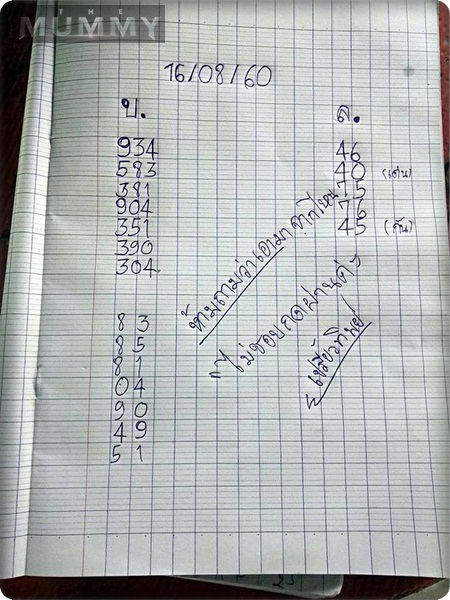 THE
MUMMY
16/08/60
บ.
ล.
934
583
381
904
351
390
304
46
40 (เด่น)
75
76
45 (ตัน)
83
85
81
04
90
49
51
ห้ามถามว่าเอามาจากไหน
ไม่ชอบกดผ่านค่ะ